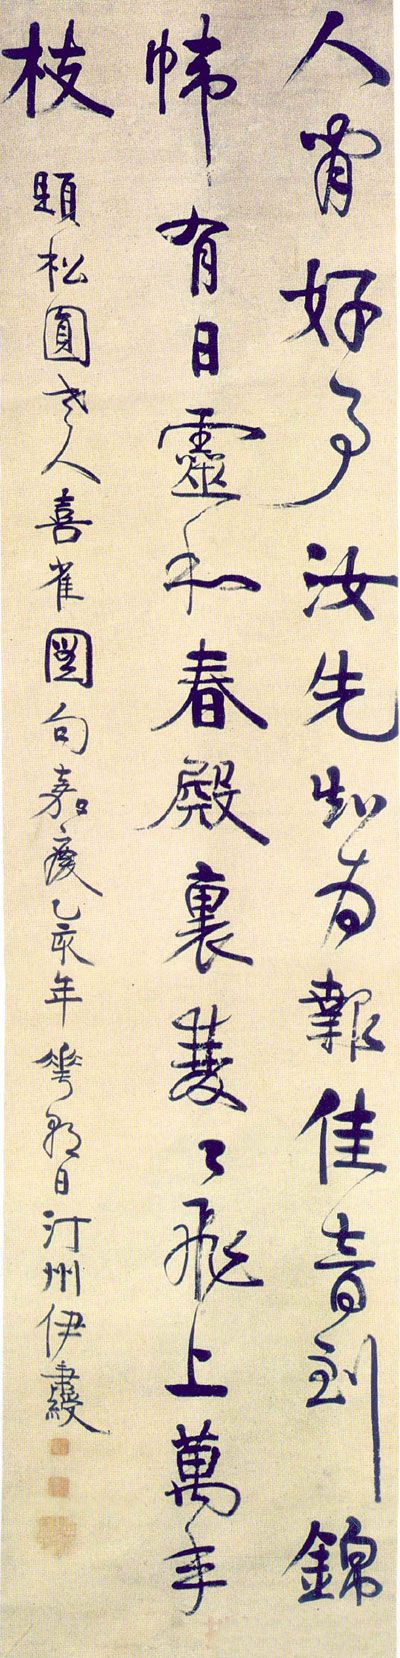 人間好事汝先知为報佳音到錦
幃有日靈和春殿裏雙〻飛上萬年
枝 題松圓老人喜雀圖句嘉慶乙亥年華朝日汀州伊秉綬